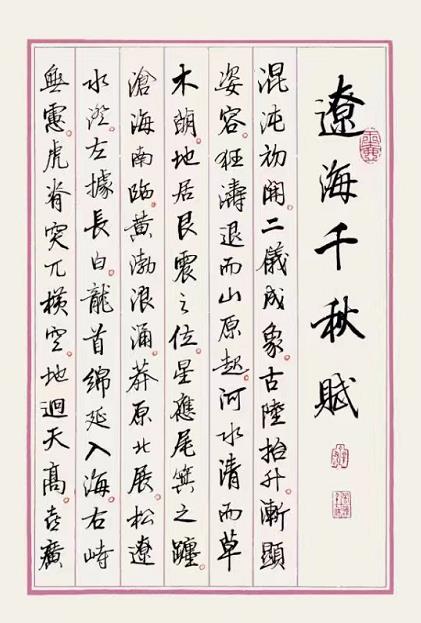 遼海千秋賦
混沌初開。二儀成象。古陸抬升。漸顯
姿容。狂濤退而山原起。河水清而草
木萌。地居艮震之位。星應尾箕之躔。
滄海南臨。黃渤浪涌。莽原北展。松遼
水澄。左據長白。龍首綿延入海。右峙
無慮。虎脊突兀橫空。地迥天高。廣